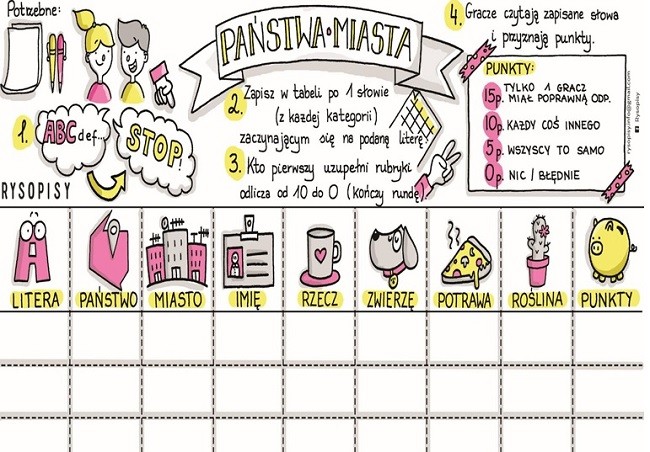 Potrzebne:
PAŃSTWA·MIASTA
1.
ABC def...
STOP!
RYSOPISY
2. Zapisz w tabeli po 1 słowie
(z każdej kategorii)
zaczynającym się na podaną literę
3. Kto pierwszy uzupełni rubryki
odlicza od 10 do 0 (kończy rundę)
4. Gracze czytają zapisane słowa
i przyznają punkty.
PUNKTY:
15p. TYLKO 1 GRACZ
MIAŁ POPRAWNĄ ODP.
10p. KAŻDY COŚ INNEGO
5p. WSZYSCY TO SAMO
0p. NIC / BŁĘDNIE
rysopisy.info@gmail.com
Rysopisy
LITERA PAŃSTWO MIASTO IMIĘ RZECZ ZWIERZĘ POTRAWA ROŚLINA PUNKTY